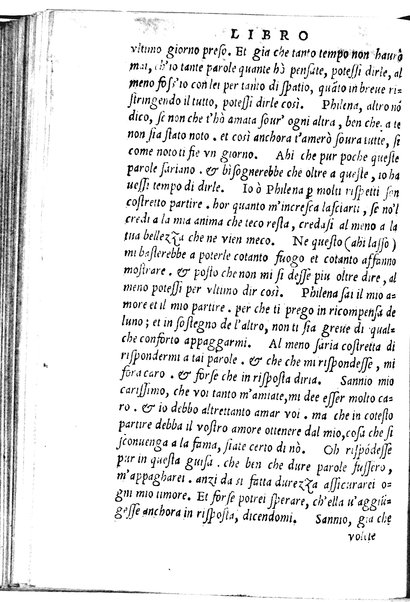 LIBRO
vltimo giorno preso. Et gia che tanto tempo non haurò
mai, ch'io tante parole quante hò pensate, potessi dirle, al
meno foss'io con lei per tanto di spatio, quãto in breue ri-
stringendo il tutto, potessi dirle così. Philena, altro nó
dico, se non che t'hò amata sour' ogni altra, ben che a te
non sia stato noto. et così anchora t'amerò soura tutte, si
come noto ti fie vn giorno. Ahi che pur poche queste
parole sariano. & bisognerebbe che oltre a queste, io ha
uessi tempo di dirle. Io ò Philena p molti rispetti son
costretto partire. hor quanto m'incresca lasciarti, se no'l
credi a la mia anima che teco resta, credasi al meno a la
tua bellezza che ne vien meco. Ne questo (ahi lasso)
mi basterebbe a poterle cotanto fuogo et cotanto affanno
mostrare. & posto che non mi si desse piu oltre dire, al
meno potessi per vltimo dir così. Philena sai il mio a-
more et il mio partire. per che ti prego in ricompensa de
luno; et in sostegno de l'altro, non ti sia greue di qual-
che conforto appagarmi. Al meno saria costretta di
rispondermi a tai parole. & che che mi rispondesse, mi
fora caro. & forse che in risposta diria. Sannio mio
carissimo, che voi tanto m'amiate, mi dee esser molto ca-
ro. & io debbo altrettanto amar voi. ma che in cotesto
partire debba il vostro amore ottenere dal mio, cosa che si
sconuenga a la fama, siate certo di nò. Oh rispõdesse
pur in questa guisa. che ben che dure parole fussero,
m'appagharei. anzi da si fatta durezza assicurarei o-
gni mio timore. Et forse potrei sperare, ch'ella u'aggiu-
gesse anchora in risposta, dicendomi. Sannio, gia che
volite